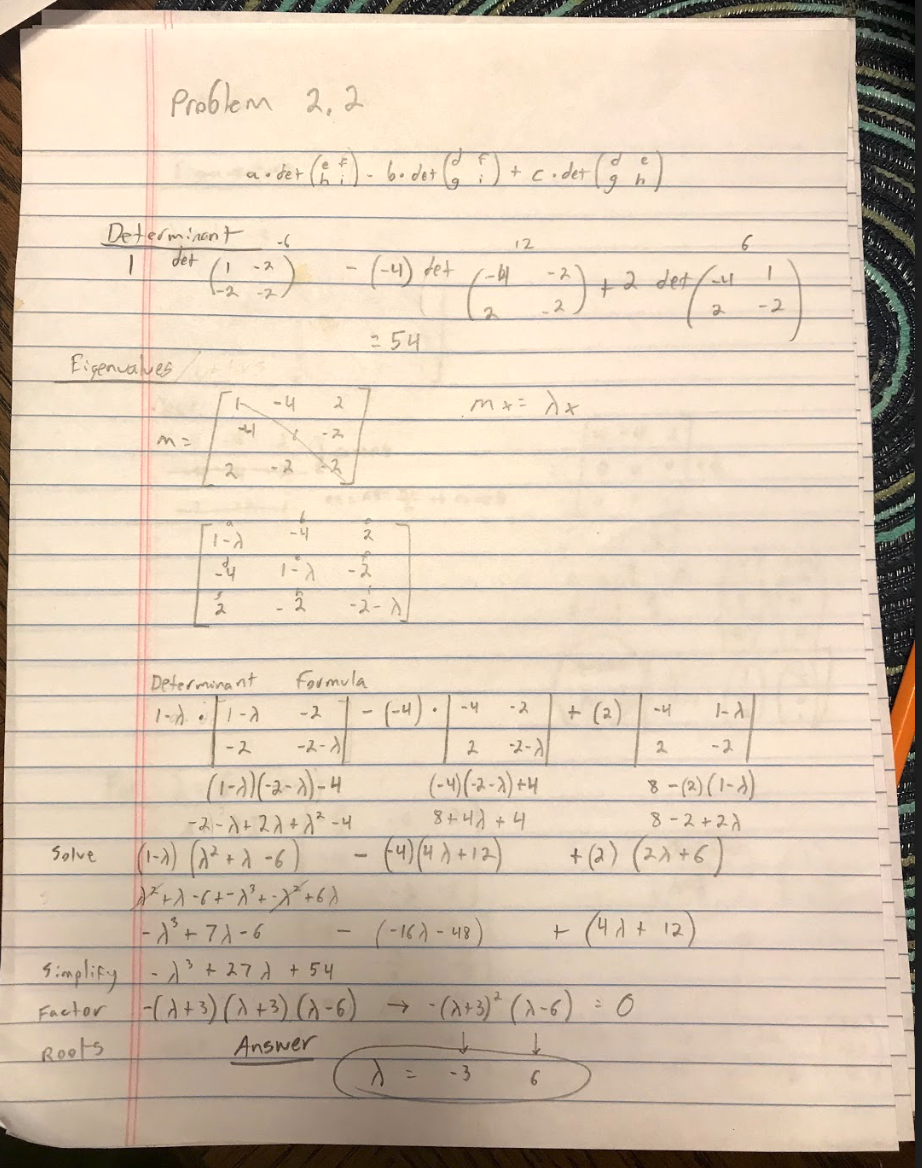 Problem 2.2
a · det (e f h i) - b · det (d f g i) + c · det (d e g h)
Determinant
-6 12 6
1 det (1 -2 - (-4) det (-4 -2 + 2 det (-4 1
-2 -2) 2 -2) 2 -2)
= 54
Eigenvalues
M = [1 -4 2 Mx = λx
-4 1 -2
2 -2 -2]
a b c
[1-λ -4 2
d e f
-4 1-λ -2
g h i
2 -2 -2-λ]
Determinant Formula
1-λ · |1-λ -2| - (-4) · |-4 -2| + (2) |-4 1-λ|
|-2 -2-λ| |2 -2-λ| |2 -2|
(1-λ)(-2-λ)-4 (-4)(-2-λ)+4 8-(2)(1-λ)
-2-λ+2λ+λ²-4 8+4λ+4 8-2+2λ
Solve (1-λ)(λ²+λ-6) - (-4)(4λ+12) +(2)(2λ+6)
λ²+λ-6+-λ³+-λ²+6λ
-λ³+7λ-6 - (-16λ-48) + (4λ+12)
Simplify -λ³+27λ+54
Factor -(λ+3)(λ+3)(λ-6) → -(λ+3)²(λ-6) = 0
Roots Answer ↓ ↓
λ = -3 6